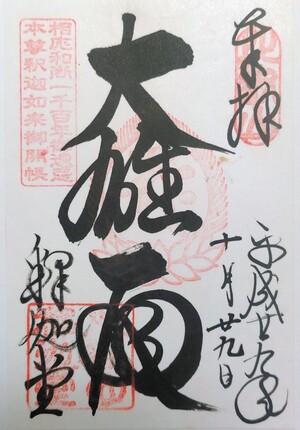 奉拝
平成廿九年
十月廿九日
大雄殿
相応和尚一千百年御遠忌
本尊釈迦如来御開帳
釋迦堂